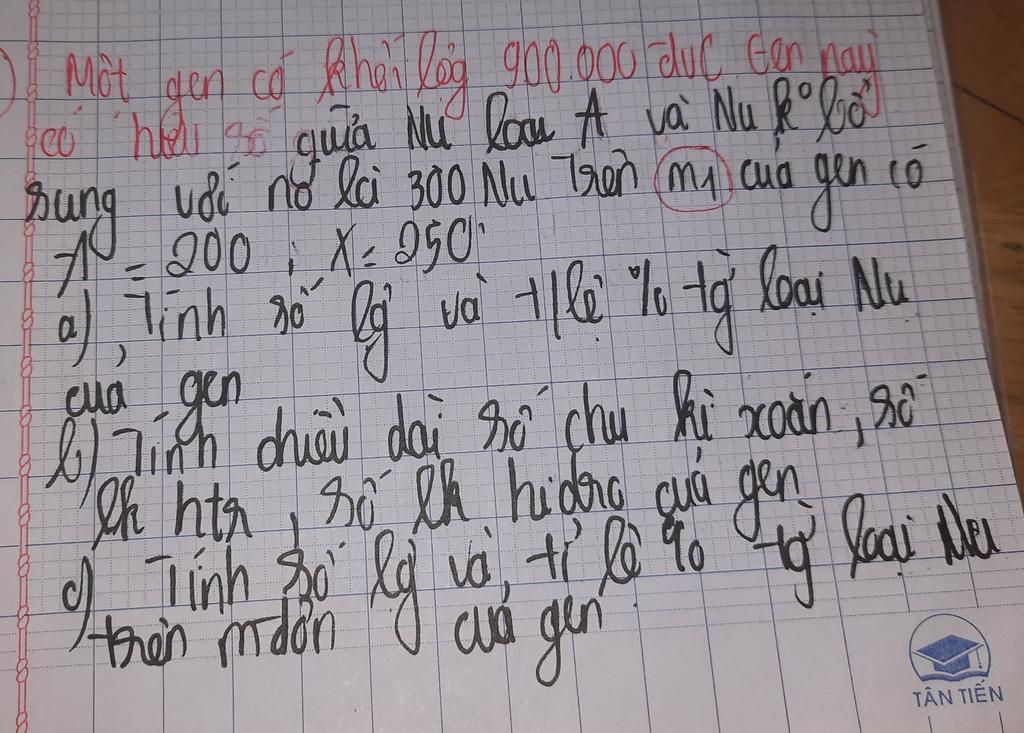 Một gen có khối lg 900.000 đvc Gen này
có hiệu số giữa Nu loại A và Nu k° bổ
sung với nó là 300 Nu Trên m1 của gen có
A = 200 ; X = 250
a), Tính số lg và tỉ lệ % tg loại Nu
của gen
b) Tính chiều dài số chu kì xoắn, số
lk htr, số lk hiđro của gen
c) Tính số lg và, tỉ lệ % tg loại Nu
trên mđơn của gen
TÂN TIẾN